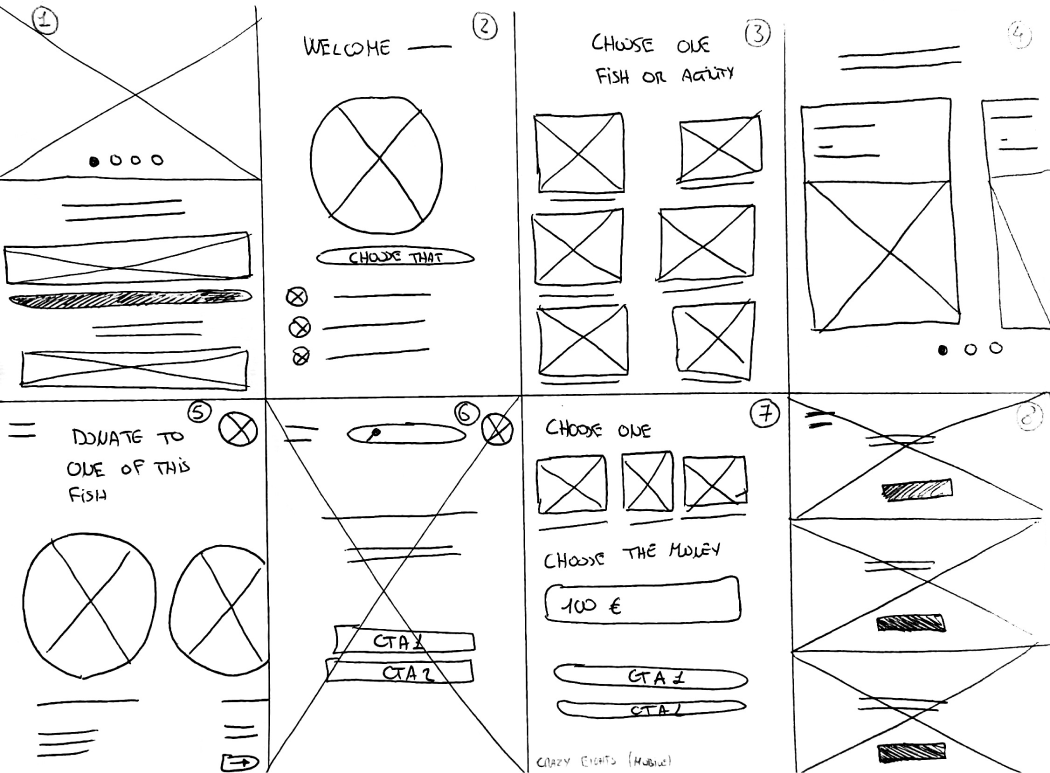 1
2
WELCOME
CHOOSE THAT
3
CHOOSE ONE
FISH OR AGILITY
4
5
DONATE TO
ONE OF THIS
FISH
6
CTA 1
CTA 2
7
CHOOSE ONE
CHOOSE THE MONEY
100 €
CTA 1
CTA 2
CRAZY EIGHTS (MOBILE)
8